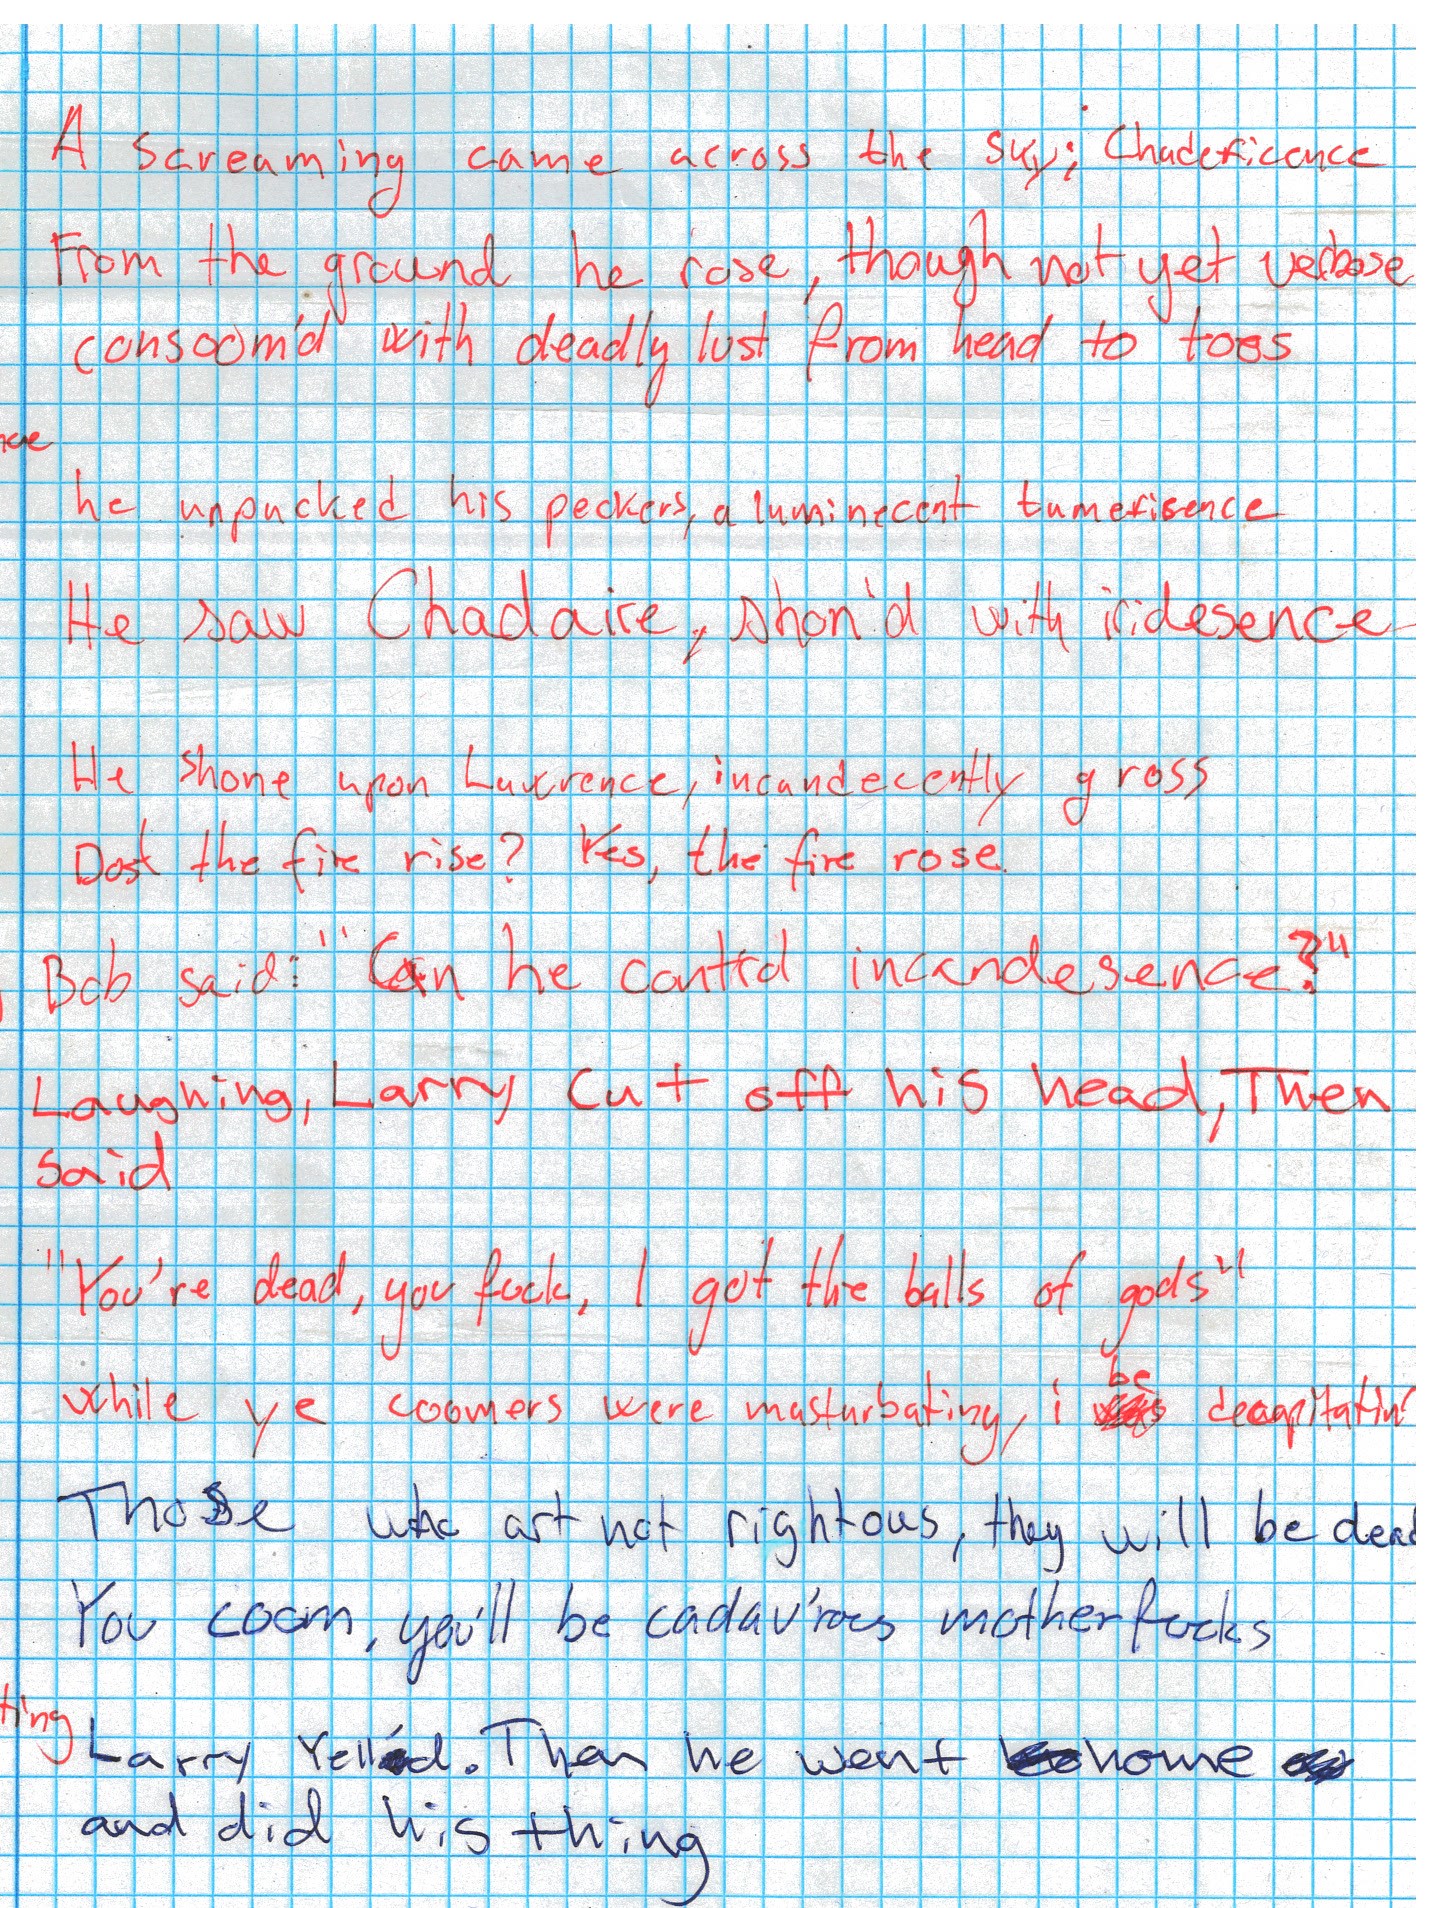 A screaming came across the sky; Chadericence
From the ground he rose, though not yet verbose
consoom'd with deadly lust from head to toes
he unpacked his peckers, a luminecent tumerisence
He saw Chadaire, shon'd with iridesence
He shone upon Lawrence, incandecently gross
Dost the fire rise? Yes, the fire rose.
Bob said: "Can he control incandesence?"
Laughing, Larry cut off his head, Then
said
"You're dead, you fuck, I got the balls of gods"
while ye coomers were masturbating, i be decapitatin'
Those who art not rightous, they will be dead
You coom, you'll be cadav'rous motherfucks
ting
Larry Yelled. Then he went home
and did his thing